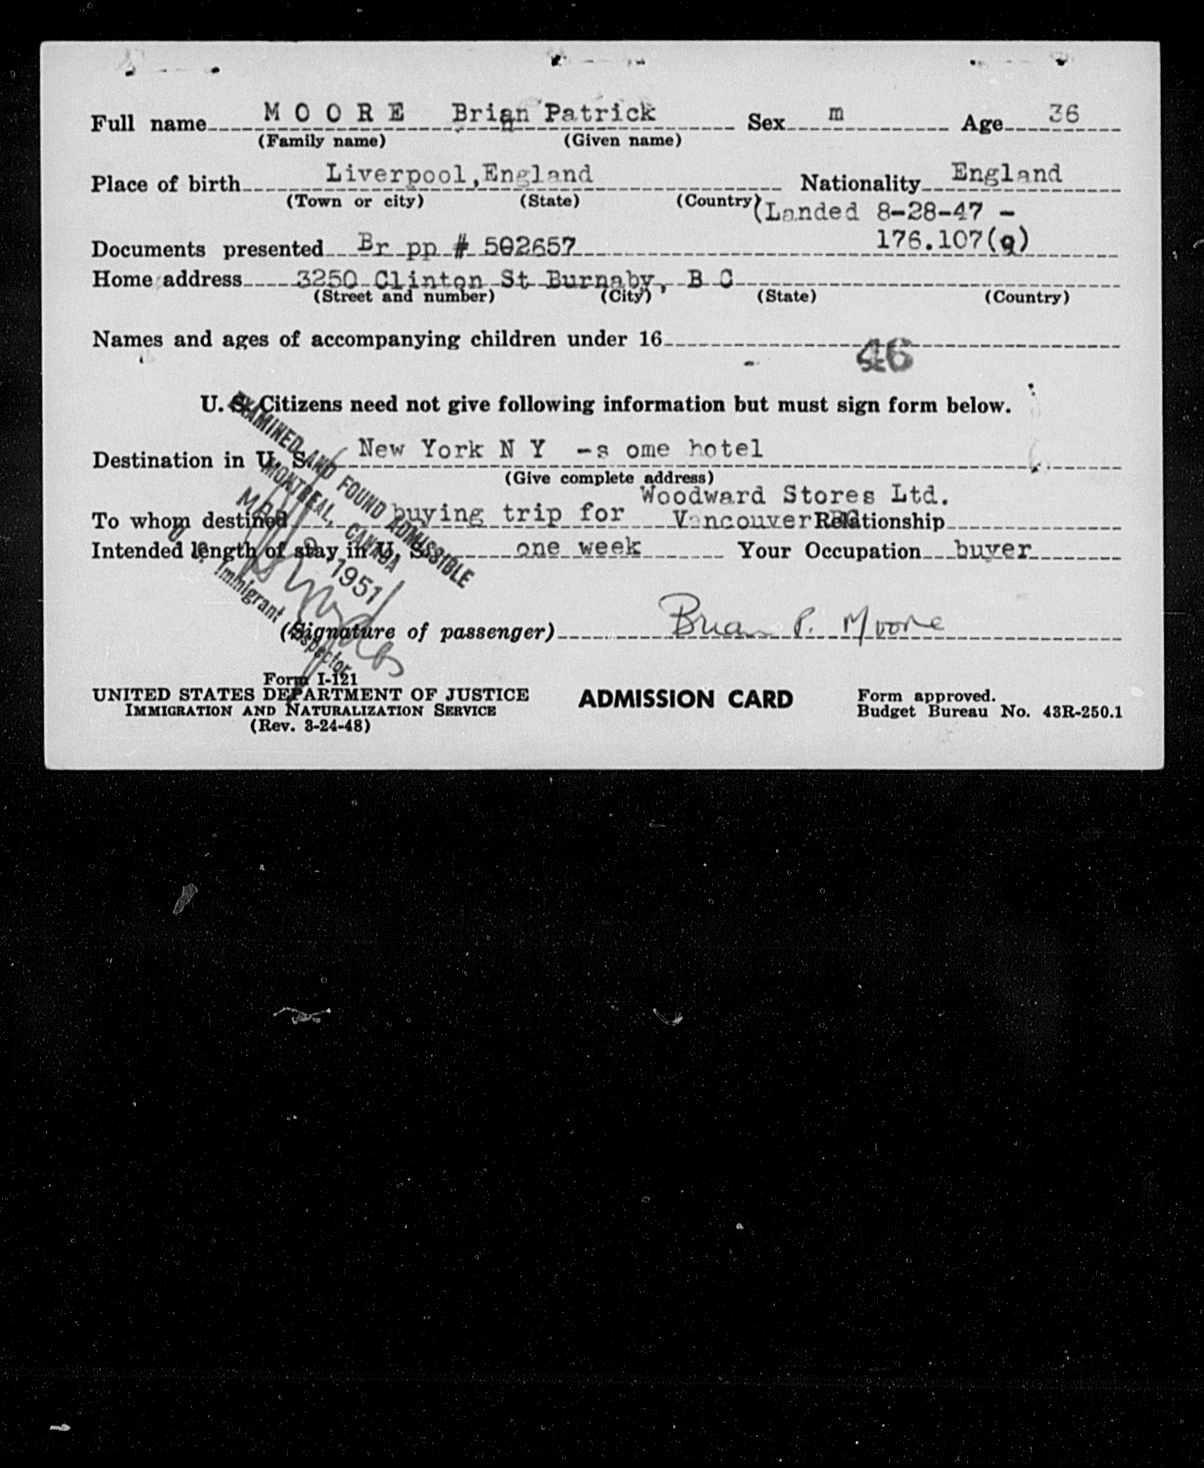 Full name M O O R E Brian Patrick Sex m Age 36
(Family name) (Given name)
Place of birth Liverpool, England Nationality England
(Town or city) (State) (Country)
(Landed 8-28-47 -
Documents presented Br pp # 502657 176.107(g)
Home address 3250 Clinton St Burnaby, B C
(Street and number) (City) (State) (Country)
Names and ages of accompanying children under 16
46
U. S. Citizens need not give following information but must sign form below.
Destination in U. S. New York N Y -s ome hotel
(Give complete address)
Woodward Stores Ltd.
To whom destined buying trip for Vancouver BC Relationship
Intended length of stay in U. S. one week Your Occupation buyer
EXAMINED AND FOUND ADMISSIBLE
MONTREAL, CANADA
1951
U. S. Immigrant Inspector
(Signature of passenger) Brian P. Moore
Form I-121
UNITED STATES DEPARTMENT OF JUSTICE
IMMIGRATION AND NATURALIZATION SERVICE
(Rev. 3-24-48)
ADMISSION CARD
Form approved.
Budget Bureau No. 43R-250.1